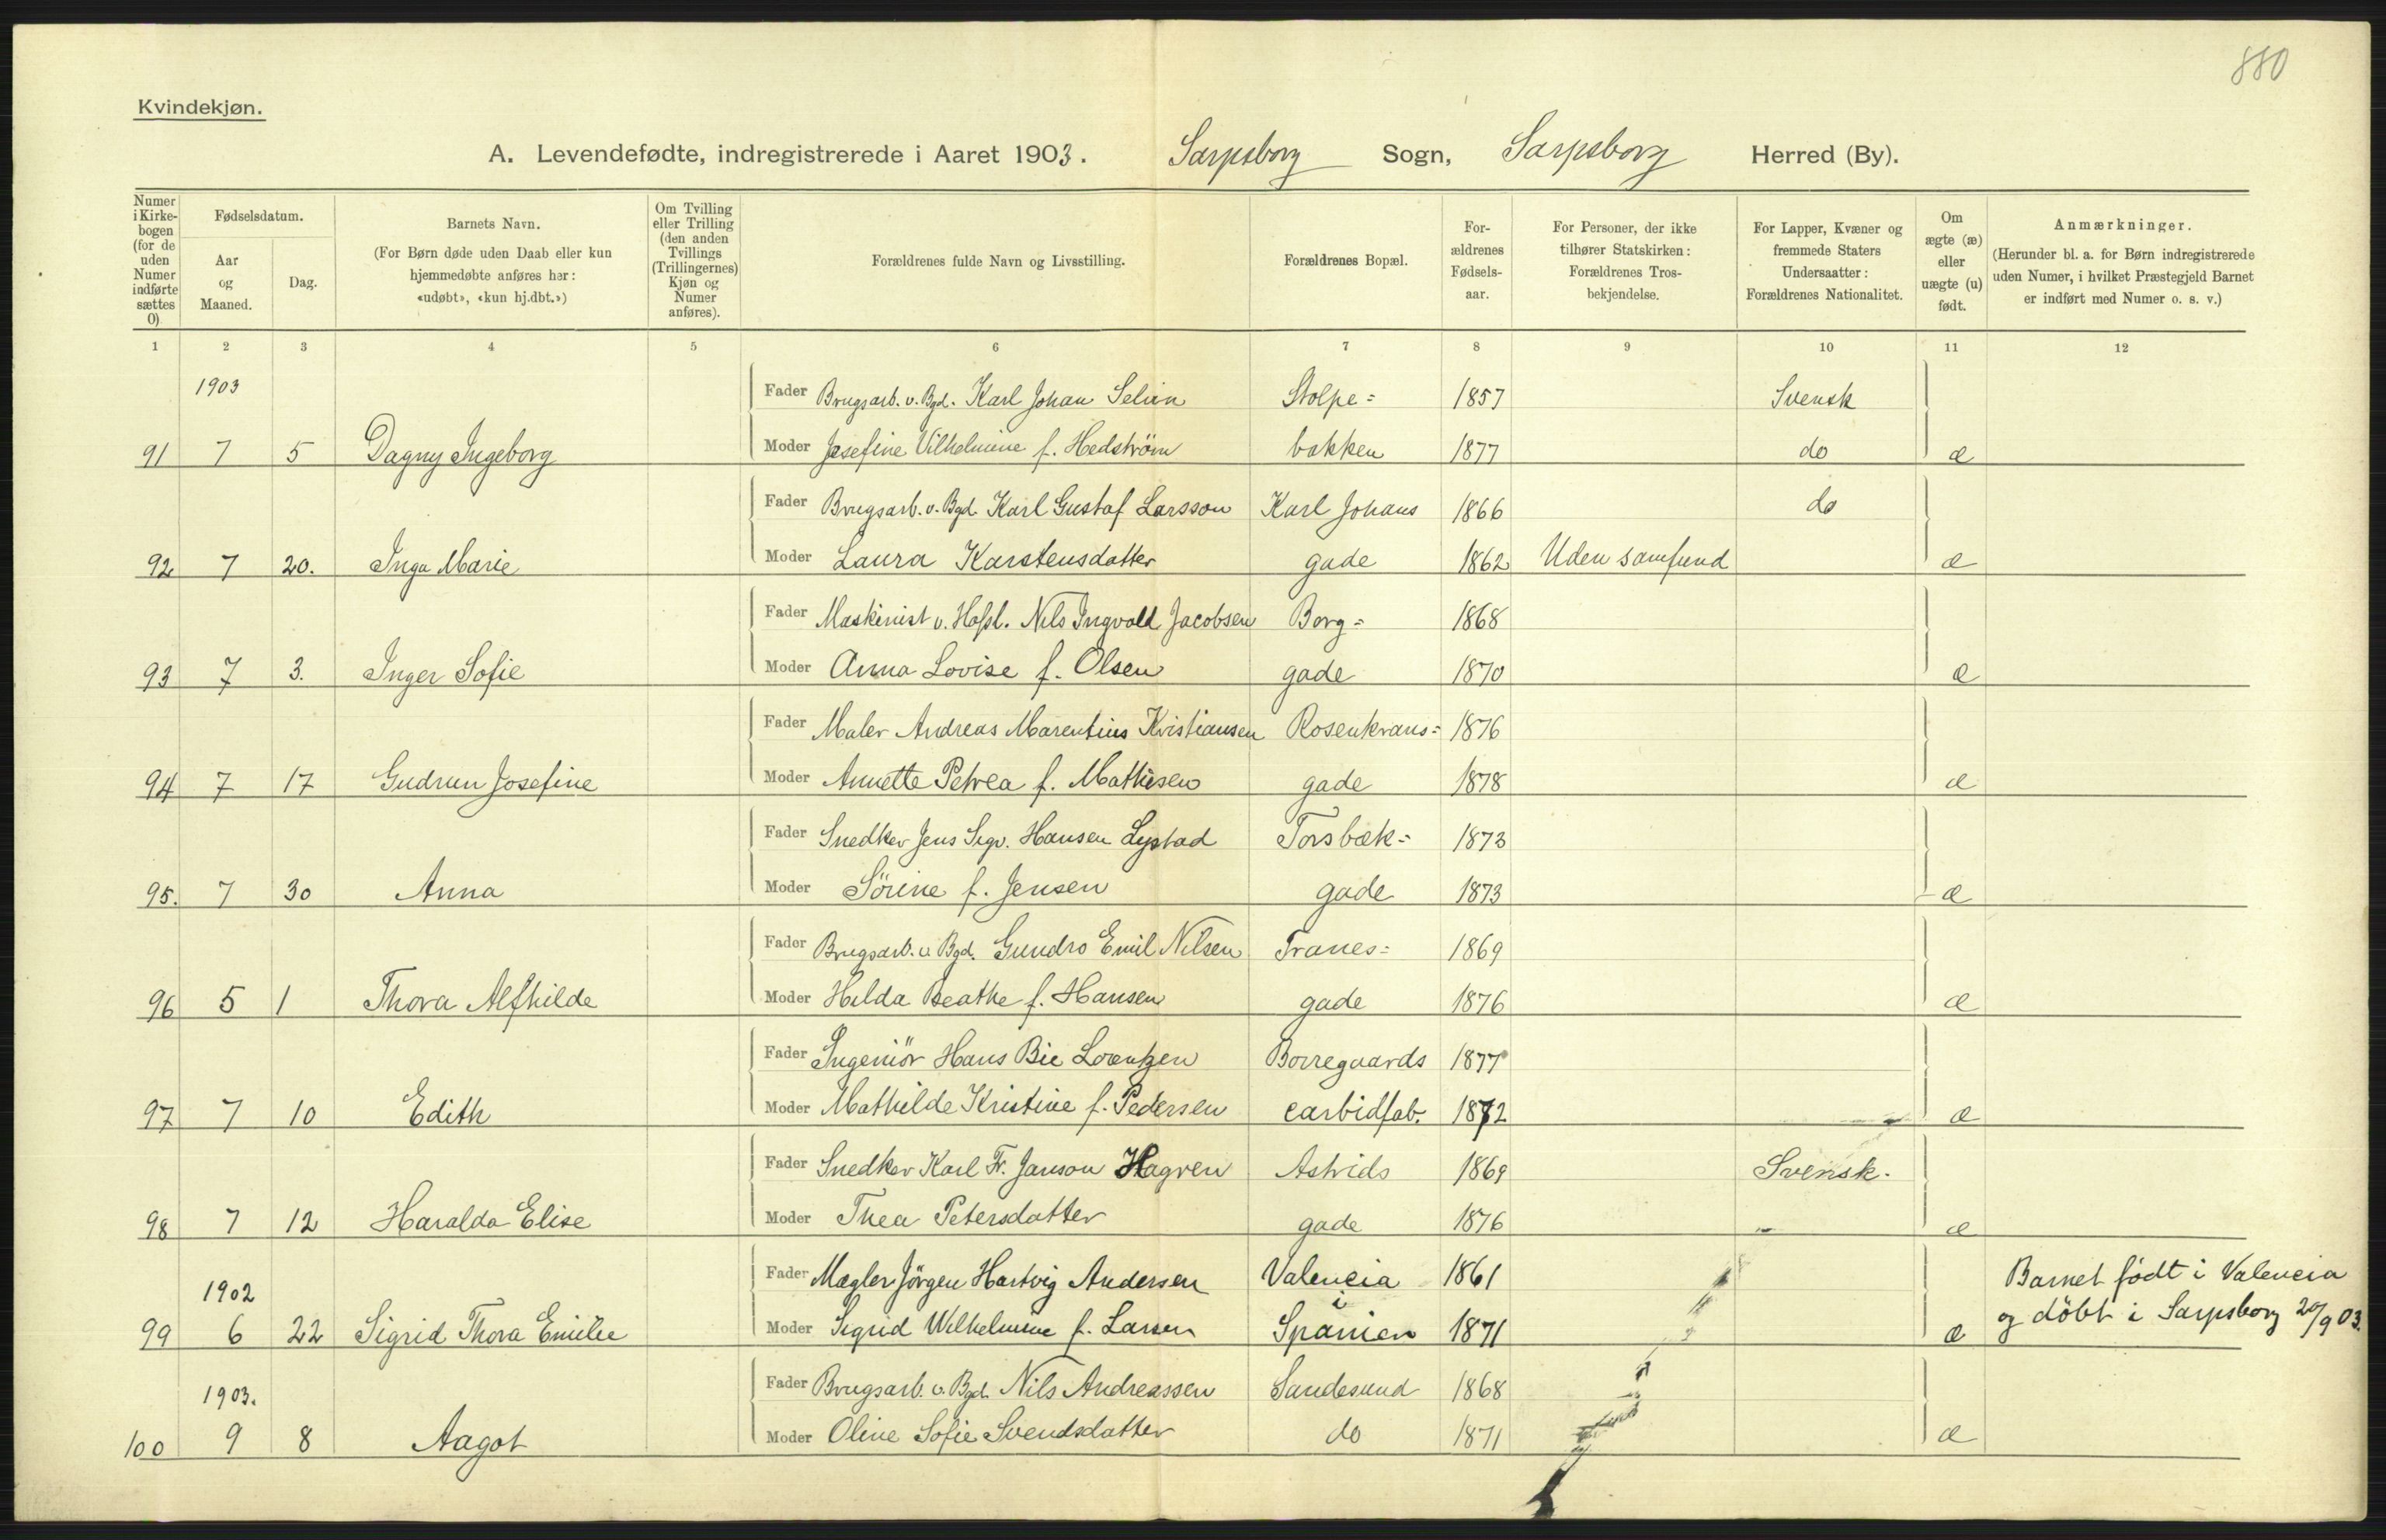 880
Kvindekjøn.
A. Levendefødte, indregistrerede i Aaret 1903. Sarpsborg Sogn, Sarpsborg Herred (By).
Numer i Kirkebogen (for de uden Numer indførte sættes 0)
Fødselsdatum.
Aar og Maaned.
Dag.
Barnets Navn.
(For Børn døde uden Daab eller kun hjemmedøbte anføres her: «udøbt», «kun hj.dbt.»)
Om Tvilling eller Trilling (den anden Tvillings (Trillingernes) Kjøn og Numer anføres).
Forældrenes fulde Navn og Livsstilling.
Forældrenes Bopæl.
For-ældrenes Fødsels-aar.
For Personer, der ikke tilhører Statskirken: Forældrenes Tros-bekjendelse.
For Lapper, Kvæner og fremmede Staters Undersaatter: Forældrenes Nationalitet.
Om ægte (æ) eller uægte (u) født.
Anmærkninger.
(Herunder bl. a. for Børn indregistrerede uden Numer, i hvilket Præstegjeld Barnet er indført med Numer o. s. v.)
1 2 3 4 5 6 7 8 9 10 11 12
1903 Fader Brugsarb. v. Bgd. Karl Johan Selin Stolpe= 1857 Svensk
91 7 5 Dagny Ingeborg Moder Josefine Vilhelmine f. Hedström bakken 1877 do æ
Fader Brugsarb. v. Bgd. Karl Gustaf Larsson Karl Johans 1866 do
92 7 20. Inga Marie Moder Laura Karstensdatter gade 1862 Uden samfund æ
Fader Maskinist v. Hafsl. Nils Ingvald Jacobsen Borg= 1868
93 7 3. Inger Sofie Moder Anna Lovise f. Olsen gade 1870 æ
Fader Maler Andreas Marentius Kristiansen Rosenkrans= 1876
94 7 17 Gudrun Josefine Moder Annette Petrea f. Mathisen gade 1878 æ
Fader Snedker Jens Sigv. Hansen Lystad Torsbæk= 1873
95. 7 30 Anna Moder Sörine f. Jensen gade 1873 æ
Fader Brugsarb. v Bgd. Gundro Emil Nilsen Tranes= 1869
96 5 1 Thora Alfhilde Moder Hilda Beathe f. Hansen gade 1876 æ
Fader Ingeniör Hans Bie Lorentzen Borregaards 1877
97 7 10 Edith Moder Mathilde Kristine f. Pedersen carbidfab. 1872 æ
Fader Snedker Karl Fr. Janson Hagren Astrids 1869 Svensk.
98 7 12 Haralda Elise Moder Thea Petersdatter gade 1876 æ
1902 Fader Mægler Jörgen Hartvig Andersen Valencia i 1861 Barnet födt i Valencia
99 6 22 Sigrid Thora Emilie Moder Sigrid Wilhelmine f. Larsen Spanien 1871 æ og döbt i Sarpsborg 20/9 03.
1903. Fader Brugsarb. v. Bgd. Nils Andreassen Sandesund 1868
100 9 8 Aagot Moder Oline Sofie Svendsdatter do 1871 æ